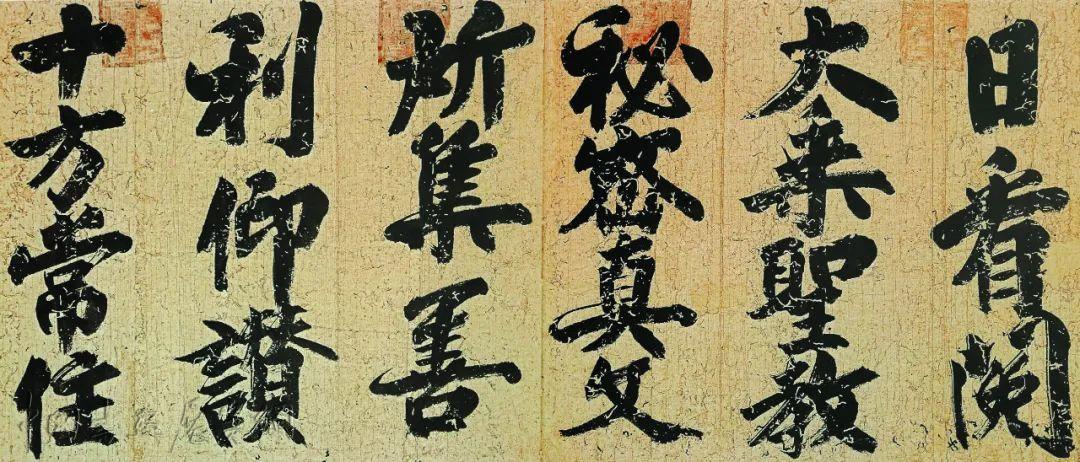 日看閱
大乘聖教
秘密真文
所集善
利仰讚
十方常住